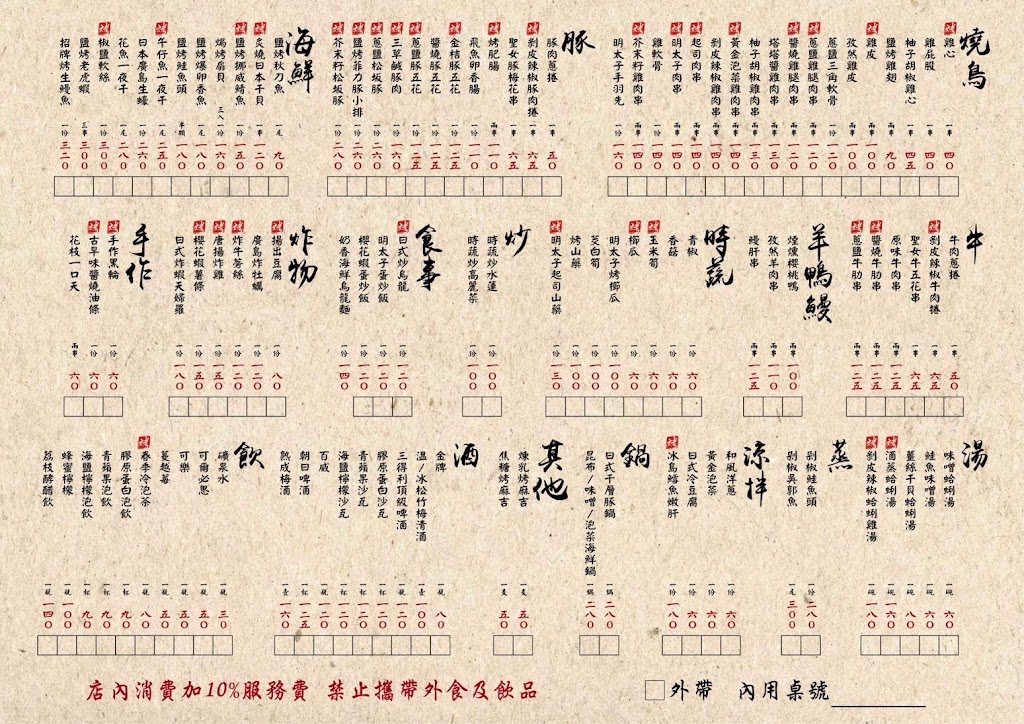 燒鳥
雞心 一串 四〇
雞屁股 一串 四〇
柚子胡椒雞心 一串 四五
鹽烤雞翅 一串 九〇
雞皮 兩串 一〇〇
孜然雞皮 兩串 一〇〇
鹽蔥三角軟骨
蔥鹽雞腿肉串
醬燒雞腿肉串
塔塔醬雞肉串
柚子胡椒雞肉串
黃金泡菜雞肉串
剝皮辣椒雞肉串
起司肉串
明太子肉串
雞軟骨
芥末籽雞肉串
明太子手羽先 一份 一六〇
豚
豚肉蔥捲 一串 五〇
剝皮辣椒豚肉捲 一串 六五
聖女豚梅花串 一串 六五
烤肥腸 兩串 一〇〇
飛魚卵香腸 一份 一一〇
金桔豚五花 一份 一一五
醬燒豚五花 一份 一一五
蔥鹽豚五花 一份 一一五
三草鹹豚肉
蔥鹽松坂豚
鹽烤菲力豚小排
芥末籽松坂豚
海鮮
鹽烤秋刀魚 一尾 九〇
炙燒日本干貝 一串 一二〇
鹽烤挪威鯖魚 一份 一五〇
焗烤扇貝 一六〇
鹽烤爆卵香魚 一尾 一八〇
鹽烤鮭魚頭 半顆 一八〇
牛仔魚一夜干 一尾 二五〇
日本廣島生蠔 一份 二六〇
花魚一夜干 一尾 二八〇
椒鹽軟絲 一份 三〇〇
鹽烤老虎蝦 三串 三〇〇
招牌烤生鰻魚 一份 三二〇
牛
牛肉蔥捲 一串 五〇
剝皮辣椒牛肉捲 一串 六五
聖女牛五花串 一串 六五
原味牛肉串 兩串 一二五
醬燒牛肋串 兩串 一二五
蔥鹽牛肋串 兩串 一二五
羊鴨鰻
煙燻櫻桃鴨 兩串 一〇〇
孜然羊肉串 兩串 一一〇
鰻肝串 一串 一二五
時蔬
青椒 一份 六〇
香菇 一份 六〇
玉米筍 一份 六〇
櫛瓜 一份 六〇
明太子烤櫛瓜 一份 一〇〇
茭白筍 一份 一〇〇
烤山藥 一份 一〇〇
明太子起司山藥 一份 一三〇
炒
時蔬炒水蓮 一份 一〇〇
時蔬炒高麗菜 一份 一〇〇
食事
日式炒烏龍 一份 一二〇
明太子蛋炒飯 一份 一二〇
櫻花蝦蛋炒飯 一份 一二〇
奶香海鮮烏龍麵 一份 一四〇
炸物
揚出豆腐 一份 八〇
廣島炸牡蠣 一份 一二〇
炸牛蒡餅 一份 一二〇
唐揚炸雞 一份 一五〇
櫻花蝦薯條 一份 一五〇
日式炸蝦天婦羅 一份 一八〇
手作
手作黑輪 一份 六〇
古早味醬燒油條 一份 六〇
花枝一口天 兩串 六〇
湯
味噌蛤蜊湯 一碗 六〇
鮭魚味噌湯 一碗 六〇
薑絲干貝蛤蜊湯 一碗 八〇
酒蒸蛤蜊 一碗 一六〇
剝皮辣椒蛤蜊雞湯 一碗 一六〇
蒸
剁椒鮭魚頭 一份 二八〇
剁椒吳郭魚 一尾 三〇〇
涼拌
和風洋蔥 一份 六〇
黃金泡菜 一份 六〇
日式冷豆腐 一份 六〇
冰島鱈魚嫩肝 一份 一八〇
鍋
日式千層豚鍋 一鍋 二八〇
昆布/味噌/泡菜海鮮鍋 一鍋 二八〇
其他
煉乳烤麻吉 一支 五〇
焦糖烤麻吉 一支 五〇
酒
金牌 一瓶 八〇
溫/冰松竹梅清酒 一瓶 一〇〇
三得利頂級啤酒
膠原蛋白沙瓦
青蘋果沙瓦
海鹽檸檬沙瓦
百威
朝日啤酒
熟成梅酒 一壺 一六〇
飲
礦泉水 一瓶 三〇
可爾必思 一瓶 五〇
可樂 一瓶 五〇
蔓越莓 一瓶 五〇
春季冷泡茶 一瓶 八〇
膠原蛋白泡飲 一杯 九〇
青蘋果泡飲 一杯 九〇
海鹽檸檬泡飲 一杯 九〇
蜂蜜檸檬 一瓶 一〇〇
荔枝酵醋飲 一瓶 一四〇
店內消費加10%服務費 禁止攜帶外食及飲品
外帶 內用桌號